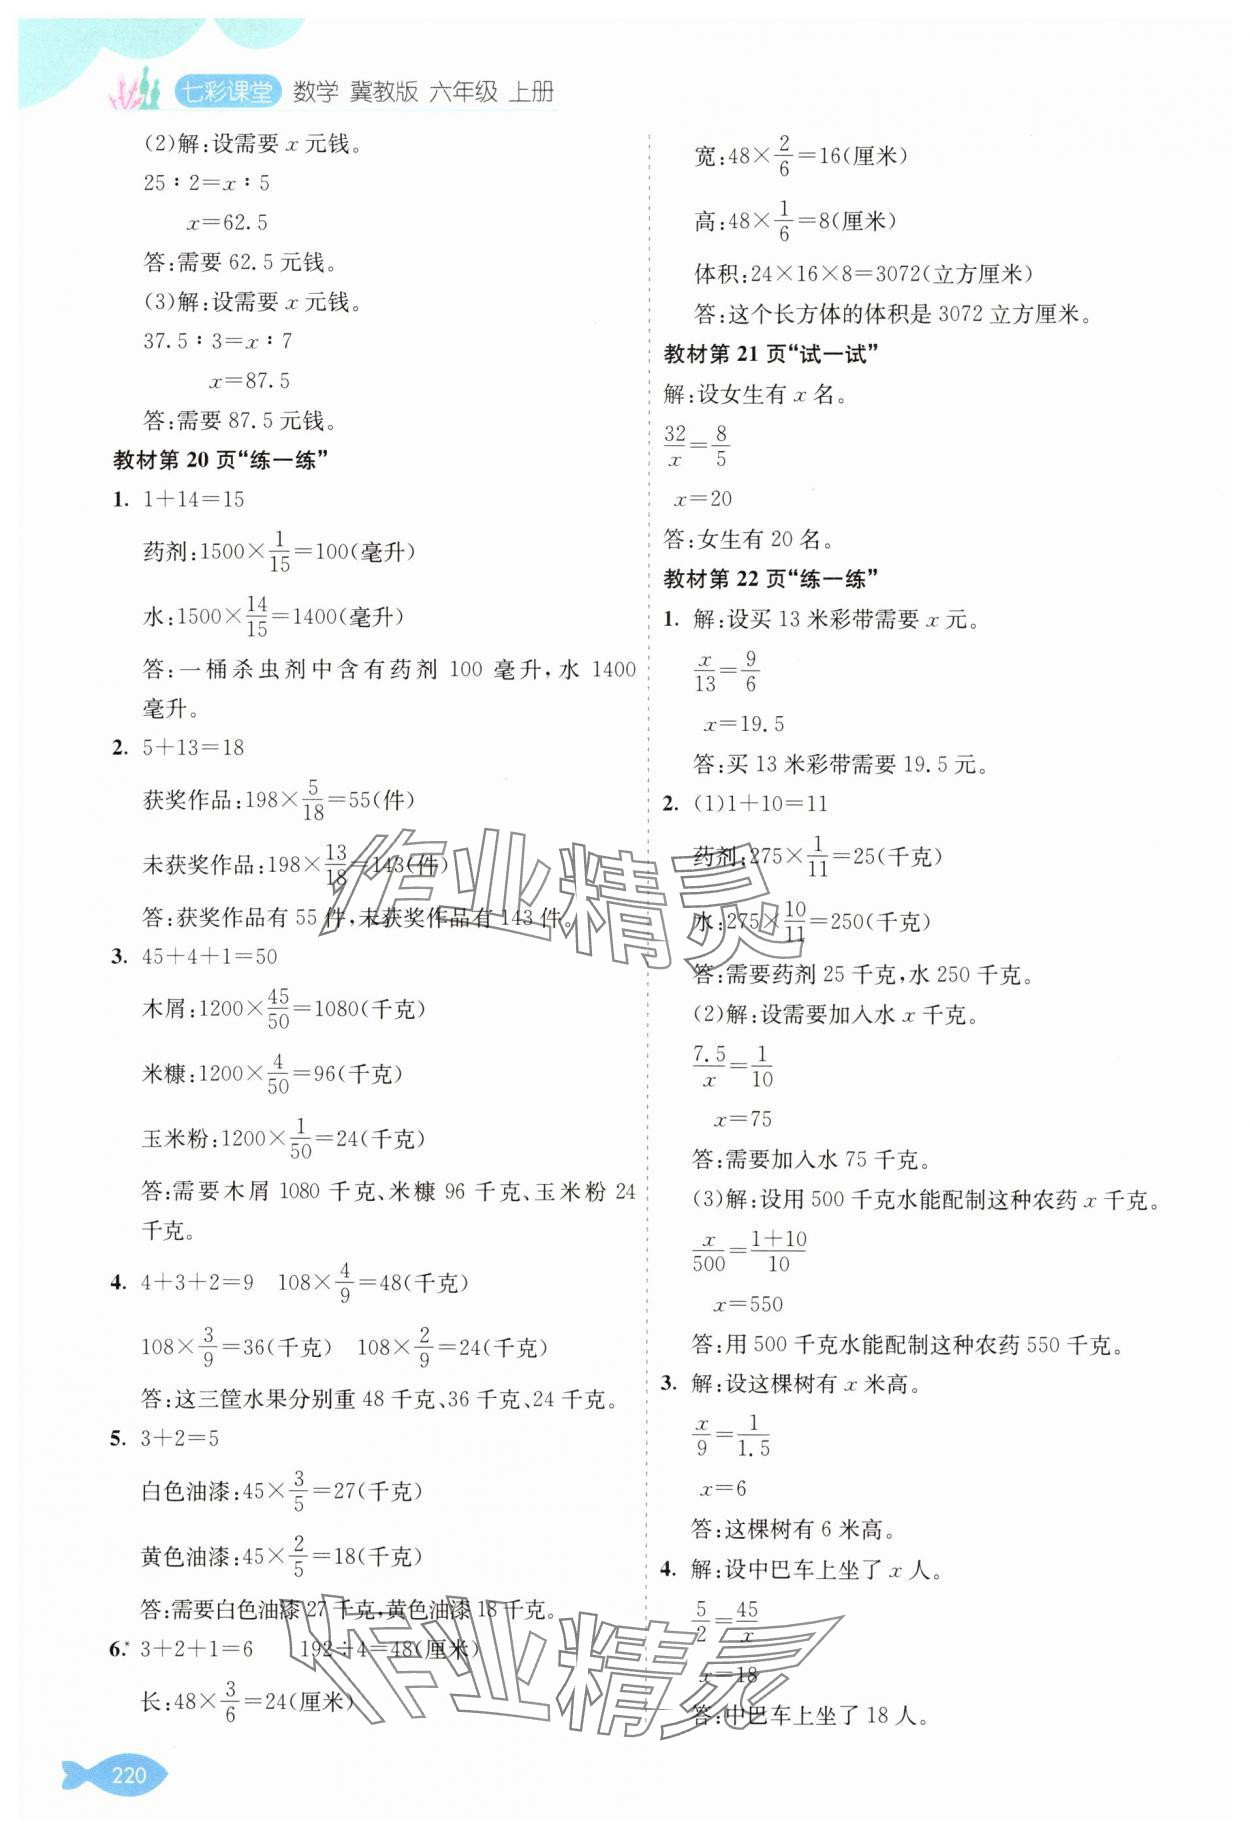 七彩课堂 数学 冀教版 六年级 上册
(2)解:设需要 x 元钱。
25∶2=x∶5
x=62.5
答:需要 62.5 元钱。
(3)解:设需要 x 元钱。
37.5∶3=x∶7
x=87.5
答:需要 87.5 元钱。
教材第 20 页“练一练”
1. 1+14=15
药剂:1500×1/15=100(毫升)
水:1500×14/15=1400(毫升)
答:一桶杀虫剂中含有药剂 100 毫升,水 1400
毫升。
2. 5+13=18
获奖作品:198×5/18=55(件)
未获奖作品:198×13/18=143(件)
答:获奖作品有 55 件,未获奖作品有 143 件。
3. 45+4+1=50
木屑:1200×45/50=1080(千克)
米糠:1200×4/50=96(千克)
玉米粉:1200×1/50=24(千克)
答:需要木屑 1080 千克、米糠 96 千克、玉米粉 24
千克。
4. 4+3+2=9 108×4/9=48(千克)
108×3/9=36(千克) 108×2/9=24(千克)
答:这三筐水果分别重 48 千克、36 千克、24 千克。
5. 3+2=5
白色油漆:45×3/5=27(千克)
黄色油漆:45×2/5=18(千克)
答:需要白色油漆 27 千克,黄色油漆 18 千克。
6.* 3+2+1=6 192÷4=48(厘米)
长:48×3/6=24(厘米)
宽:48×2/6=16(厘米)
高:48×1/6=8(厘米)
体积:24×16×8=3072(立方厘米)
答:这个长方体的体积是 3072 立方厘米。
教材第 21 页“试一试”
解:设女生有 x 名。
32/x=8/5
x=20
答:女生有 20 名。
教材第 22 页“练一练”
1. 解:设买 13 米彩带需要 x 元。
x/13=9/6
x=19.5
答:买 13 米彩带需要 19.5 元。
2. (1)1+10=11
药剂:275×1/11=25(千克)
水:275×10/11=250(千克)
答:需要药剂 25 千克,水 250 千克。
(2)解:设需要加入水 x 千克。
7.5/x=1/10
x=75
答:需要加入水 75 千克。
(3)解:设用 500 千克水能配制这种农药 x 千克。
x/500=(1+10)/10
x=550
答:用 500 千克水能配制这种农药 550 千克。
3. 解:设这棵树有 x 米高。
x/9=1/1.5
x=6
答:这棵树有 6 米高。
4. 解:设中巴车上坐了 x 人。
5/2=45/x
x=18
答:中巴车上坐了 18 人。
作业精灵
作业精灵
220